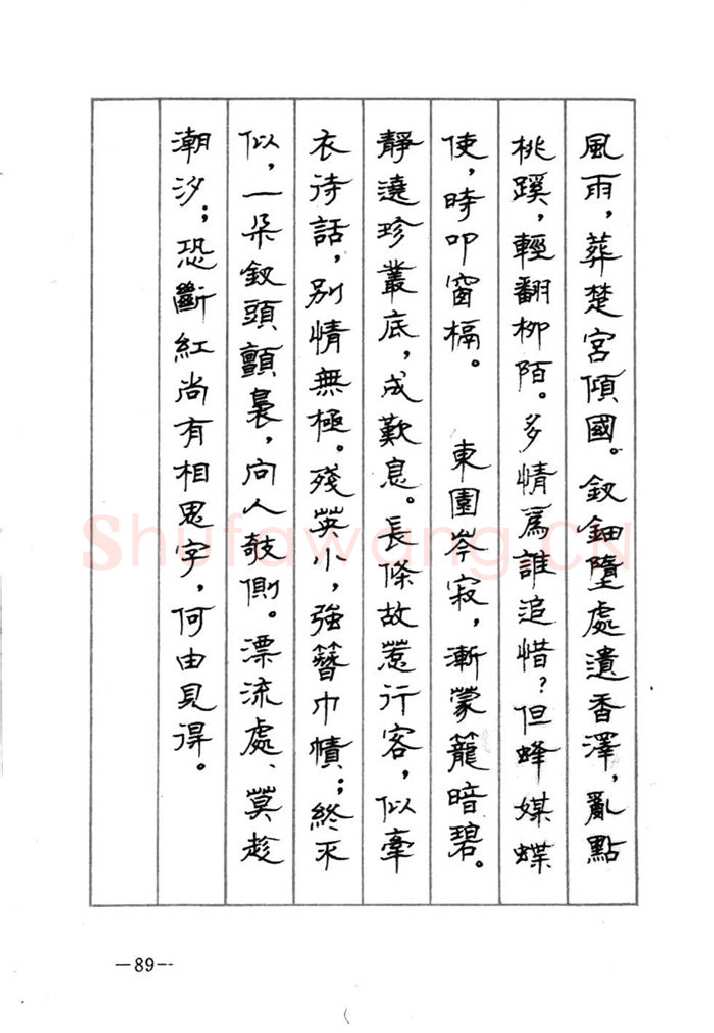 風雨，葬楚宮傾國。釵鈿墮處遺香澤，亂點
桃蹊，輕翻柳陌。多情爲誰追惜？但蜂媒蝶
使，時叩窗槅。 東園岑寂，漸蒙籠暗碧。
靜遶珍叢底，成歎息。長條故惹行客，似牽
衣待話，別情無極。殘英小，強簪巾幘；終不
似，一朵釵頭顫裊，向人欹側。漂流處、莫趁
潮汐；恐斷紅尚有相思字，何由見得。
Shufawang.CN
—89—